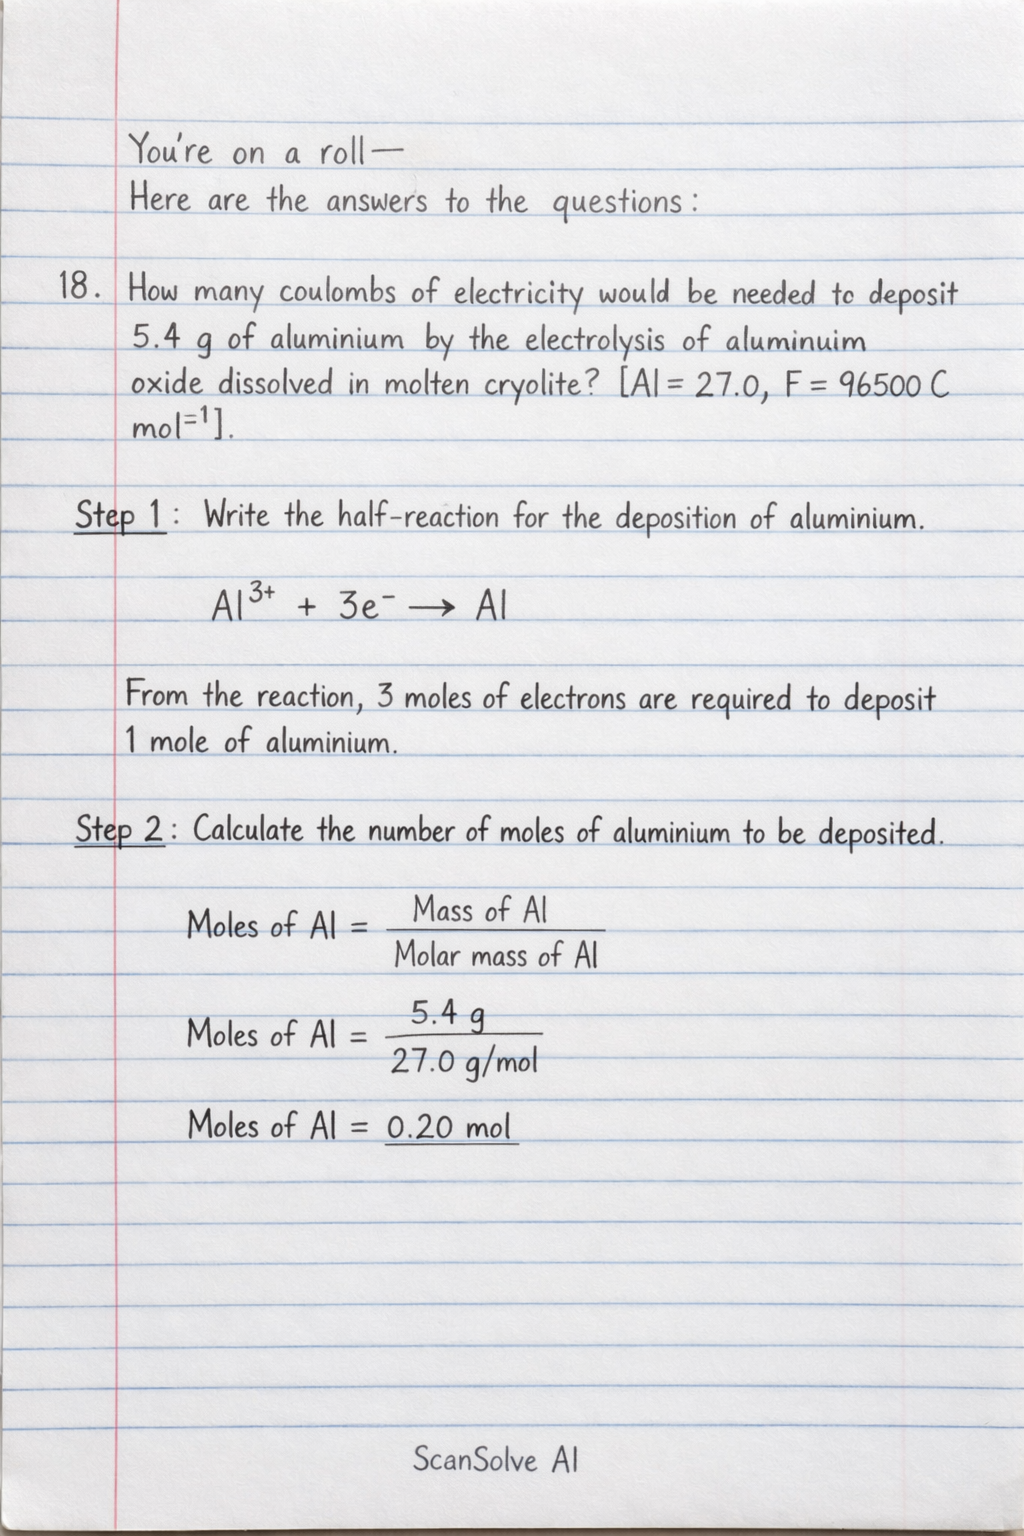 You're on a roll—
Here are the answers to the questions:
18. How many coulombs of electricity would be needed to deposit
5.4 g of aluminium by the electrolysis of aluminuim
oxide dissolved in molten cryolite? [Al = 27.0, F = 96500 C
mol⁼¹].
Step 1: Write the half-reaction for the deposition of aluminium.
Al³⁺ + 3e⁻ → Al
From the reaction, 3 moles of electrons are required to deposit
1 mole of aluminium.
Step 2: Calculate the number of moles of aluminium to be deposited.
Moles of Al = Mass of Al
Molar mass of Al
Moles of Al = 5.4 g
27.0 g/mol
Moles of Al = 0.20 mol
ScanSolve AI